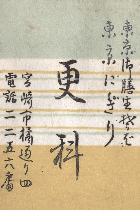 東京御膳生そば
東京にぎり
更科
宮崎市橘通り四
電話二二五六番